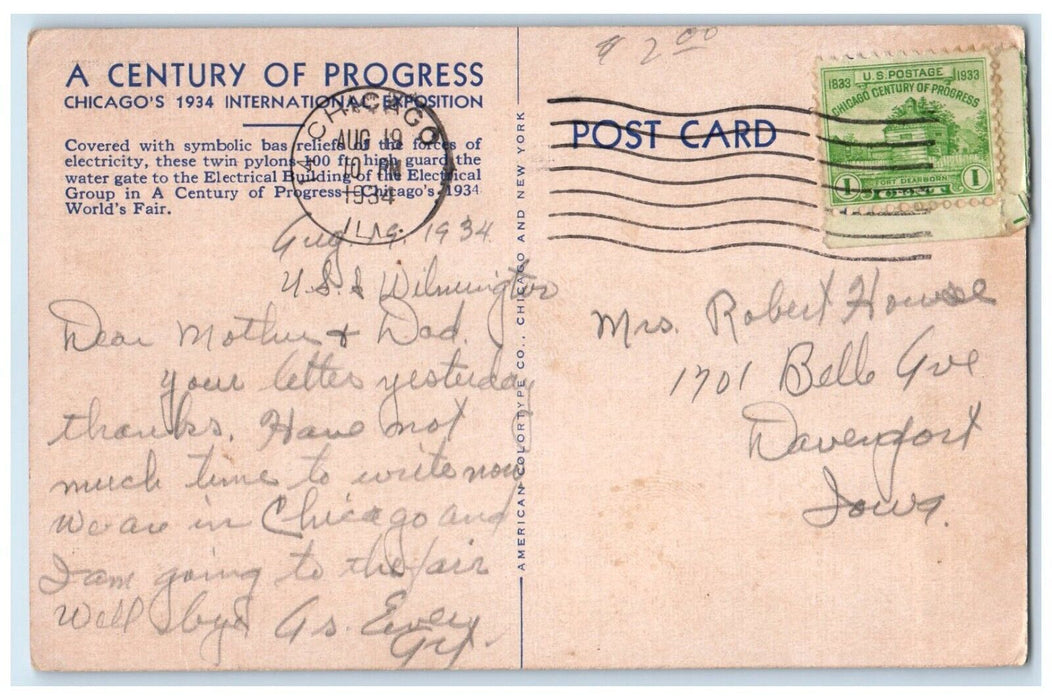 A CENTURY OF PROGRESS
CHICAGO'S 1934 INTERNATIONAL EXPOSITION
Covered with symbolic bas reliefs of the forces of
electricity, these twin pylons 100 ft. high guard the
water gate to the Electrical Building of the Electrical
Group in A Century of Progress—Chicago's 1934
World's Fair.
CHICAGO
AUG 19
PM
1934
ILL.
Aug 19. 1934
U.S.S Wilmington
Dear Mother & Dad.
your letter yesterday
thanks. Have not
much time to write now
We are in Chicago and
I am going to the fair
Well bye As. Ever
AMERICAN COLORTYPE CO., CHICAGO AND NEW YORK
$ 2.00
POST CARD
1833 U.S. POSTAGE 1933
CHICAGO CENTURY OF PROGRESS
FORT DEARBORN
1 CENT 1
Mrs. Robert Howse
1701 Belle Ave
Davenport
Iowa.